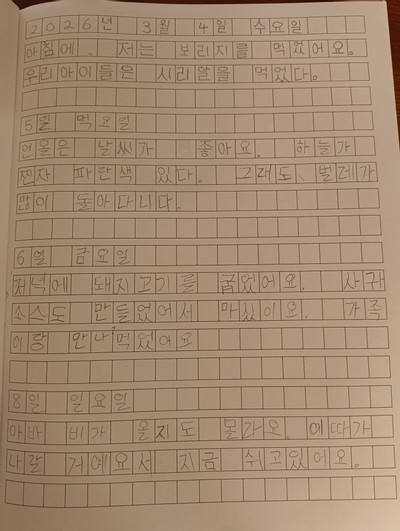 2026년 3월 4일 수요일
아침에, 저는 보리지를 먹었어요.
우리아이들은 시리알을 먹었다.
5일 먹요일
언을은 날씨가 좋아요. 하늘가
찐자 파란색 있다. 그래도, 벌레가
많이 돌아다니다.
6일 금요일
저녁에 돼지고기를 굽었어요. 사과
소수도 만들었어서 마싰이요. 가족
이랑 만나먹었어요
8일 일요일
아바 비가 올지도 몰라요. 이따가
나갈 거예요서 지금 쉬고있어요.